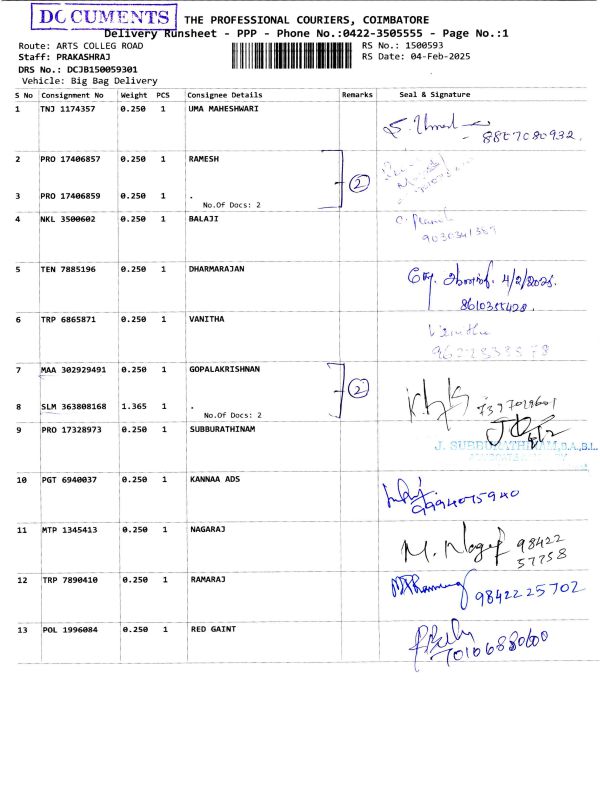 DOCUMENTS
THE PROFESSIONAL COURIERS, COIMBATORE
Delivery Runsheet - PPP - Phone No.:0422-3505555 - Page No.:1
Route: ARTS COLLEG ROAD
RS No.: 1500593
Staff: PRAKASHRAJ
RS Date: 04-Feb-2025
DRS No.: DCJB150059301
Vehicle: Big Bag Delivery
S No Consignment No Weight PCS Consignee Details Remarks Seal & Signature
1 TNJ 1174357 0.250 1 UMA MAHESHWARI
8807080932.
2 PRO 17406857 0.250 1 RAMESH
2
3 PRO 17406859 0.250 1 .
No.Of Docs: 2
4 NKL 3500602 0.250 1 BALAJI
5 TEN 7885196 0.250 1 DHARMARAJAN
4/2/2025.
6 TRP 6865871 0.250 1 VANITHA
7 MAA 302929491 0.250 1 GOPALAKRISHNAN
2
8 SLM 363808168 1.365 1 .
No.Of Docs: 2
9 PRO 17328973 0.250 1 SUBBURATHINAM
J. SUBBURATHINAM,B.A.,B.L.
10 PGT 6940037 0.250 1 KANNAA ADS
9994075940
11 MTP 1345413 0.250 1 NAGARAJ
M. Nagaraj 98422
57758
12 TRP 7890410 0.250 1 RAMARAJ
9842225702
13 POL 1996084 0.250 1 RED GAINT